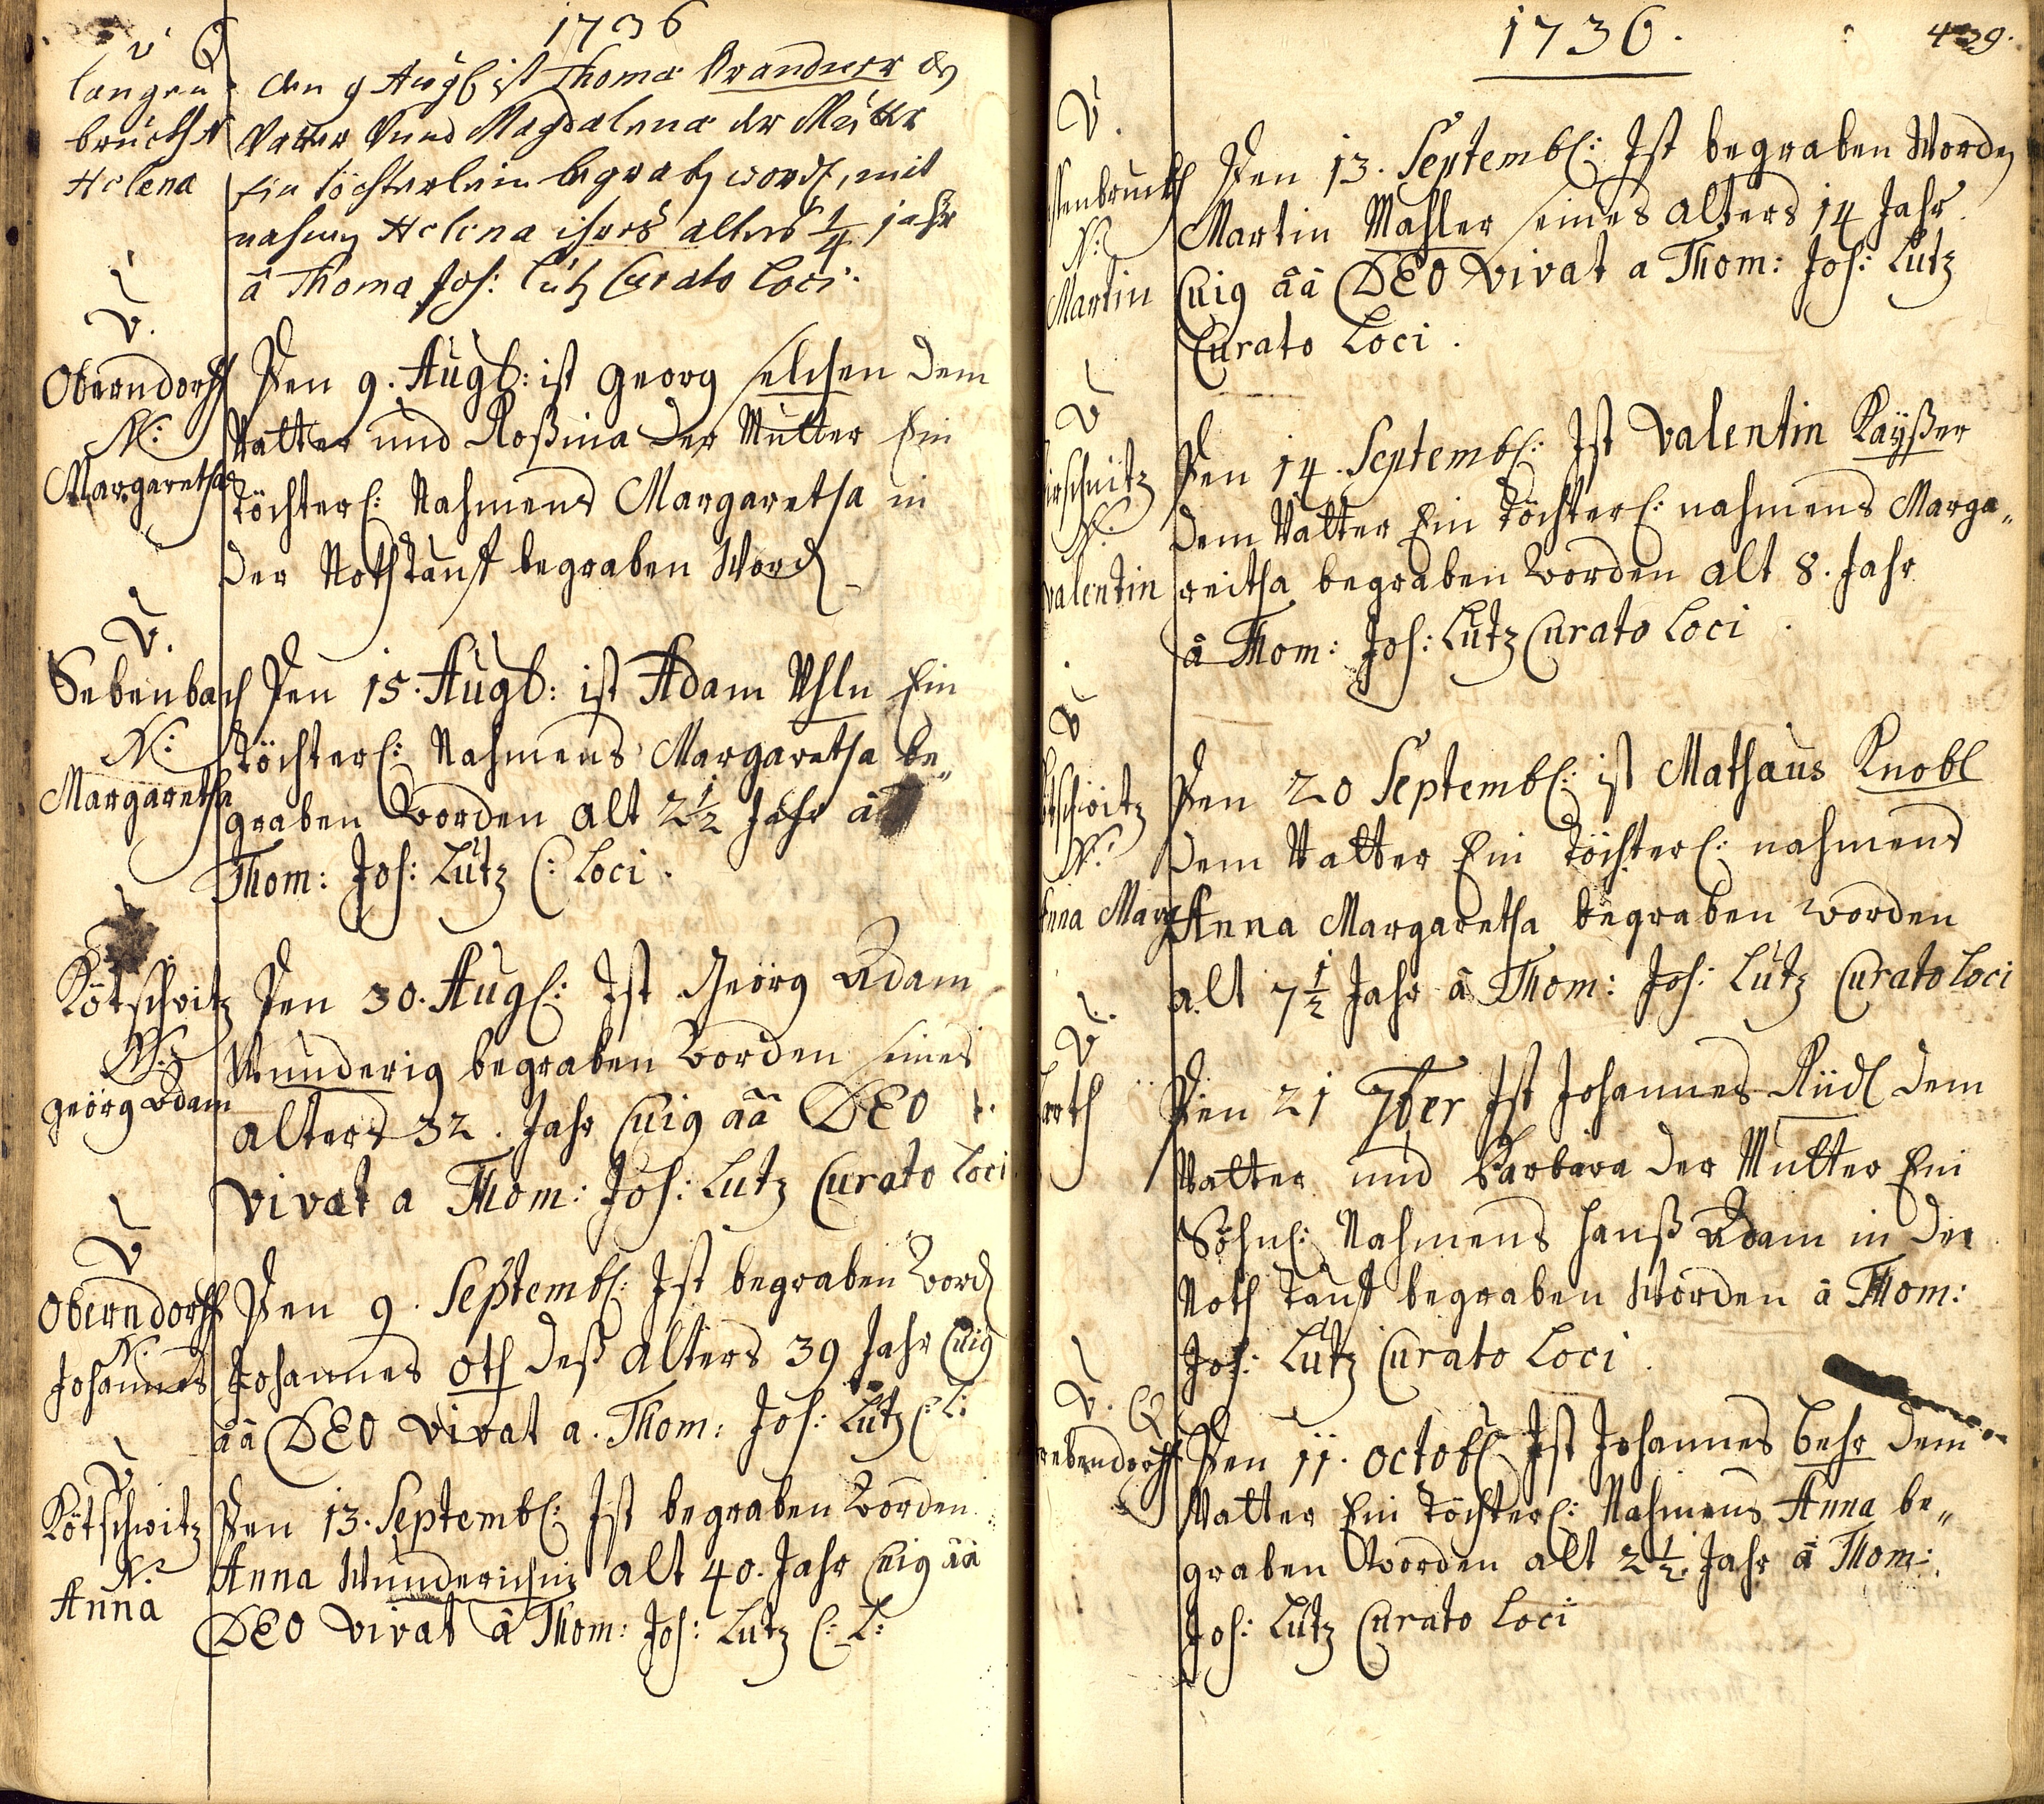 1736
V
langen
bruckh N
Helena
den 9 Augl ist Thoma Brandner dz
Vatter Vnnd Magdalena der Mutter
Ein töchterlein begrabz wordt, mit
nahmen Helena ihres alters 1/4 jahr
â Thoma Joh: Lutz Curato Loci.
V.
Oberndorff
N:
Margaretha
Den 9. Augl: ist Georg selchen dem
Vatter und Roßina der Mutter Ein
töchterl: Nahmens Margaretha in
der Nothtauf begraben Word
V.
Sebenbach
N:
Margaretha
Den 15. Augl: ist Adam Uhln Ein
töchterl: Nahmens Margaretha be„
graben worden alt 2 1/2 Jahr â
Thom: Joh: Lutz C: Loci.
Kötschwitz
N:
georg Adam
Den 30. Augl: Ist Georg Adam
Wunderig begraben worden seines
alters 32. Jahr Cuig ââ DEO
vivat a Thom: Joh: Lutz Curato Loci
V
Oberndorff
N.
Johannes
Den 9. Septembl: Ist begraben Word
Johannes Oth deß alters 39 Jahr Cuig
ââ DEO vivat a. Thom: Joh: Lutz C: L:
V
Kötschwitz
N.
Anna
Den 13. Septembl: Ist begraben worden
Anna Wunderichin alt 40. Jahr Cuig ââ
DEO vivat â Thom: Joh: Lutz C: L:
1736.
439.
V.
stenbruckh
N:
Martin
Den 13. Septembl: Ist begraben Worden
Martin Mahler seines alters 14 Jahr
Cuig ââ DEO vivat a Thom: Joh: Lutz
Curato Loci.
V
irschnitz
N.
valentin
Den 14. Septembl: Ist Valentin Kayßer
dem Vatter Ein töchterl: nahmens Marga„
reitha begraben worden alt 8. Jahr
â Thom: Joh: Lutz Curato Loci.
V
tschwitz
N:
Anna Marg
Den 20 Septembl: ist Mathaus Knobl
dem Vatter Ein töchterl: nahmens
Anna Margaretha begraben worden
alt 7 1/2 Jahr â Thom: Joh: Lutz Curato Loci
V.
arth
Den 21 7ber Ist Johannes Riidl dem
Vatter und Barbara der Mutter Ein
Söhnl: Nahmens Hanß Adam in der
Noth tauf begraben Worden â Thom:
Joh: Lutz Curato Loci.
V.
rebendorff
Den 11. octobl Ist Johannes Behr dem
Vatter Ein töchterl: Nahmens Anna be„
graben worden alt 2 1/2. Jahr â Thom:
Joh: Lutz Curato Loci